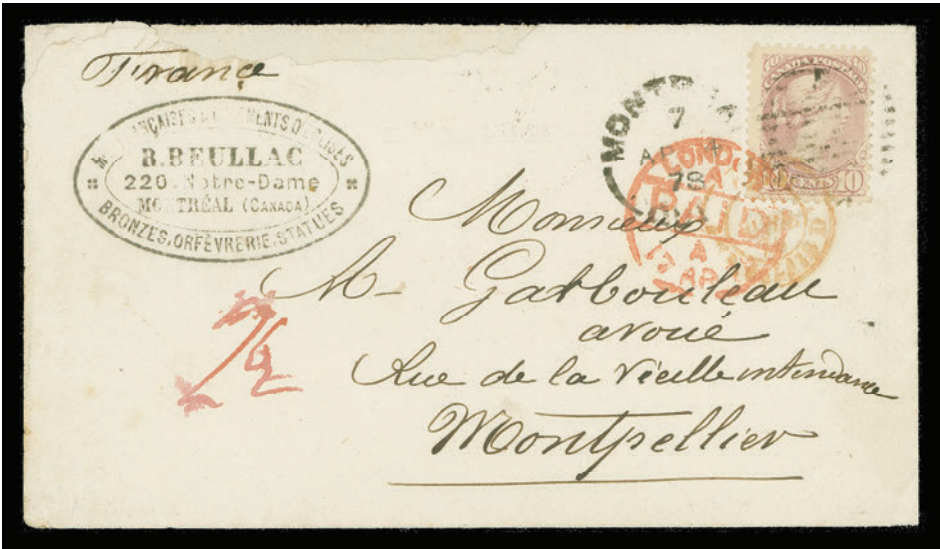 France
FRANÇAISES D'ORNEMENTS D'EGLISES
R. BEULLAC
220. Notre-Dame
MONTRÉAL (CANADA)
BRONZES, ORFÈVRERIE, STATUES
MONTREAL
7
AP
78
CANADA POSTAGE
10 CENTS 10
LONDON
PAID
A
17 AP
Monsieur
M- Gatbouleau
avoué
Rue de la Vieille intendance
Montpellier